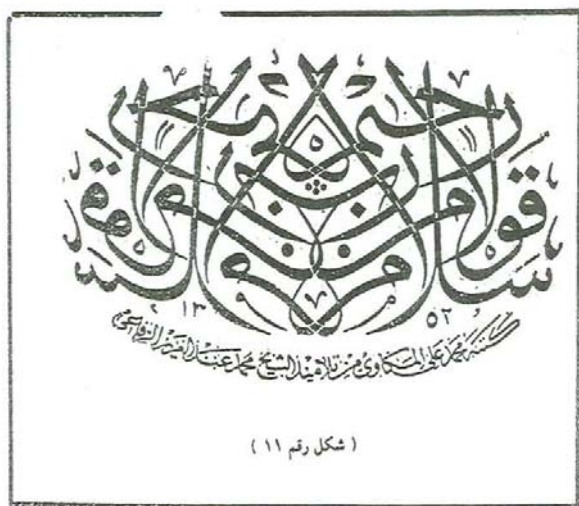 سلام قولا من رب رحيم
١٣٥٢
كتبه محمد علي المكاوي من تلاميذ الشيخ محمد عبد العزيز الرفاعي
( شكل رقم ١١ )